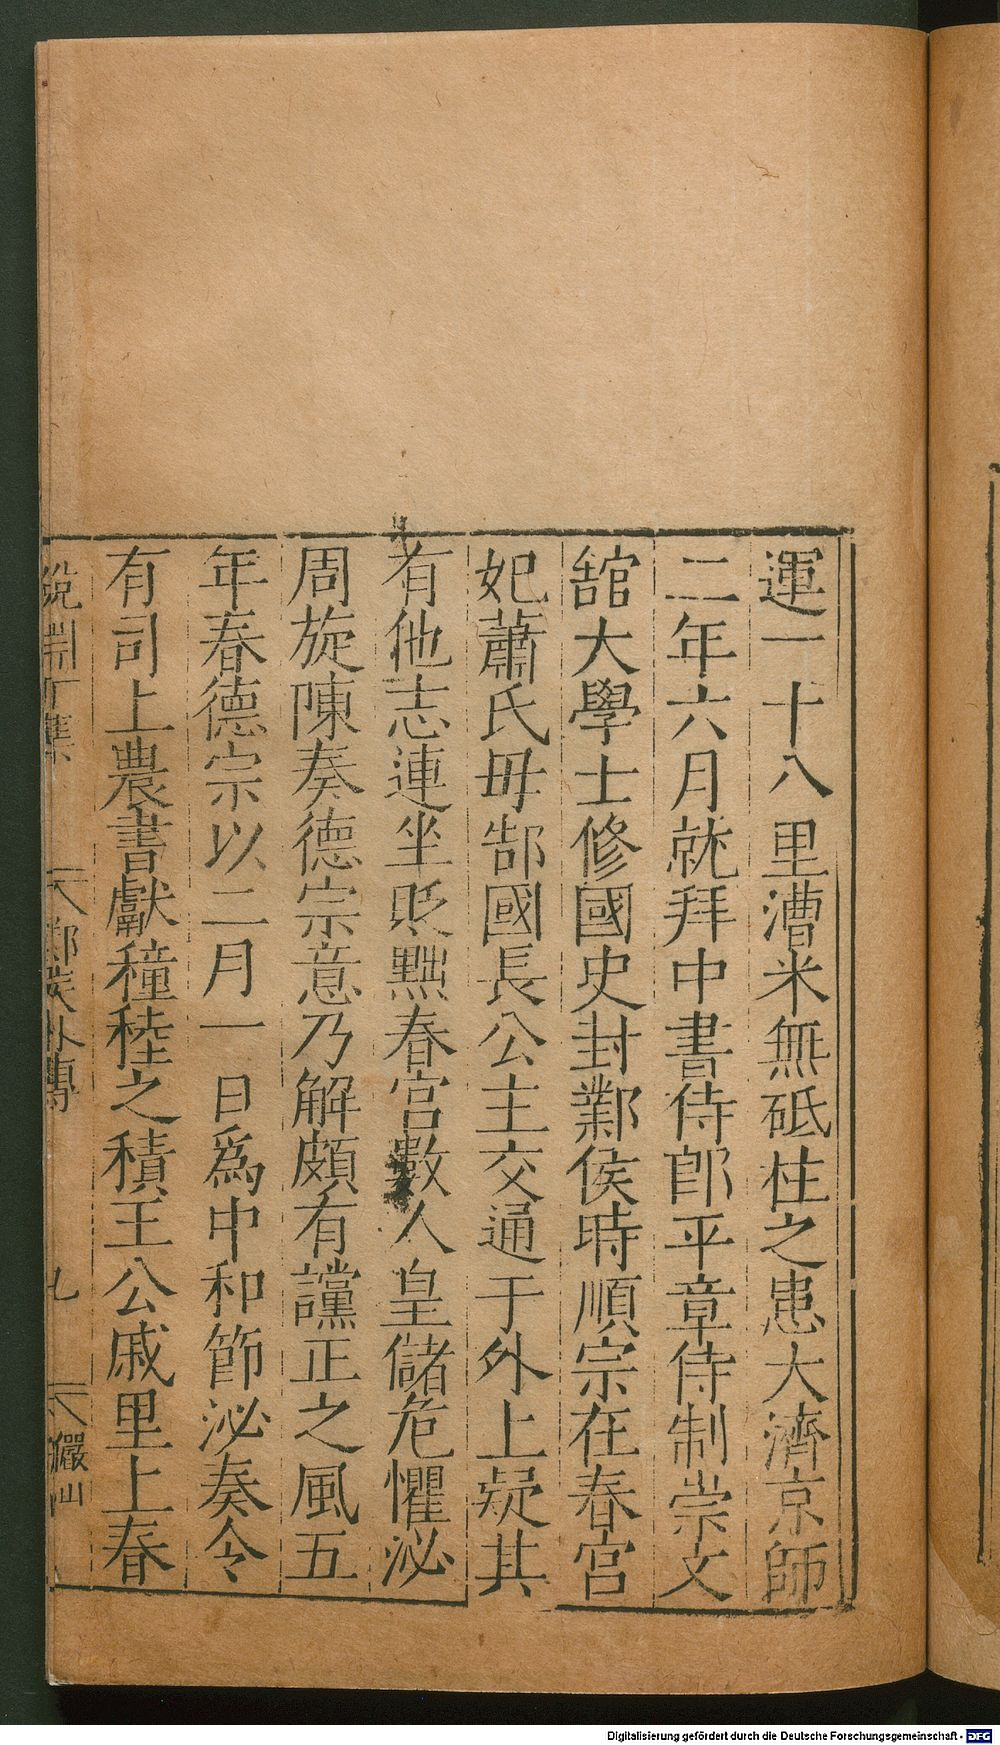 運一十八里漕米無砥柱之患大濟京師
二年六月就拜中書侍郎平章侍制崇文
舘大學士修國史封鄴侯時順宗在春宮
妃蕭氏毋郜國長公主交通于外上疑其
有他志連坐貶黜春宮數人皇儲危懼泌
周旋陳奏德宗意乃解頗有讜正之風五
年春德宗以二月一日爲中和節泌奏令
有司上農書獻穜稑之積王公戚里上春
說淵丁集 鄴侯外傳 九 儼山
Digitalisierung gefördert durch die Deutsche Forschungsgemeinschaft - DFG